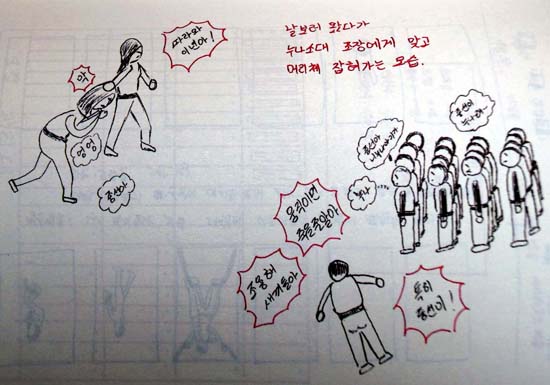 날보러 왔다가
누나소대 조장에게 맞고
머리채 잡혀가는 모습.
따라와
이년아!
악
엉엉
종선아
종선이
누나래...
종선아
누나
움직이면
죽을줄알아
조용해
새끼들아
특히
종선이!